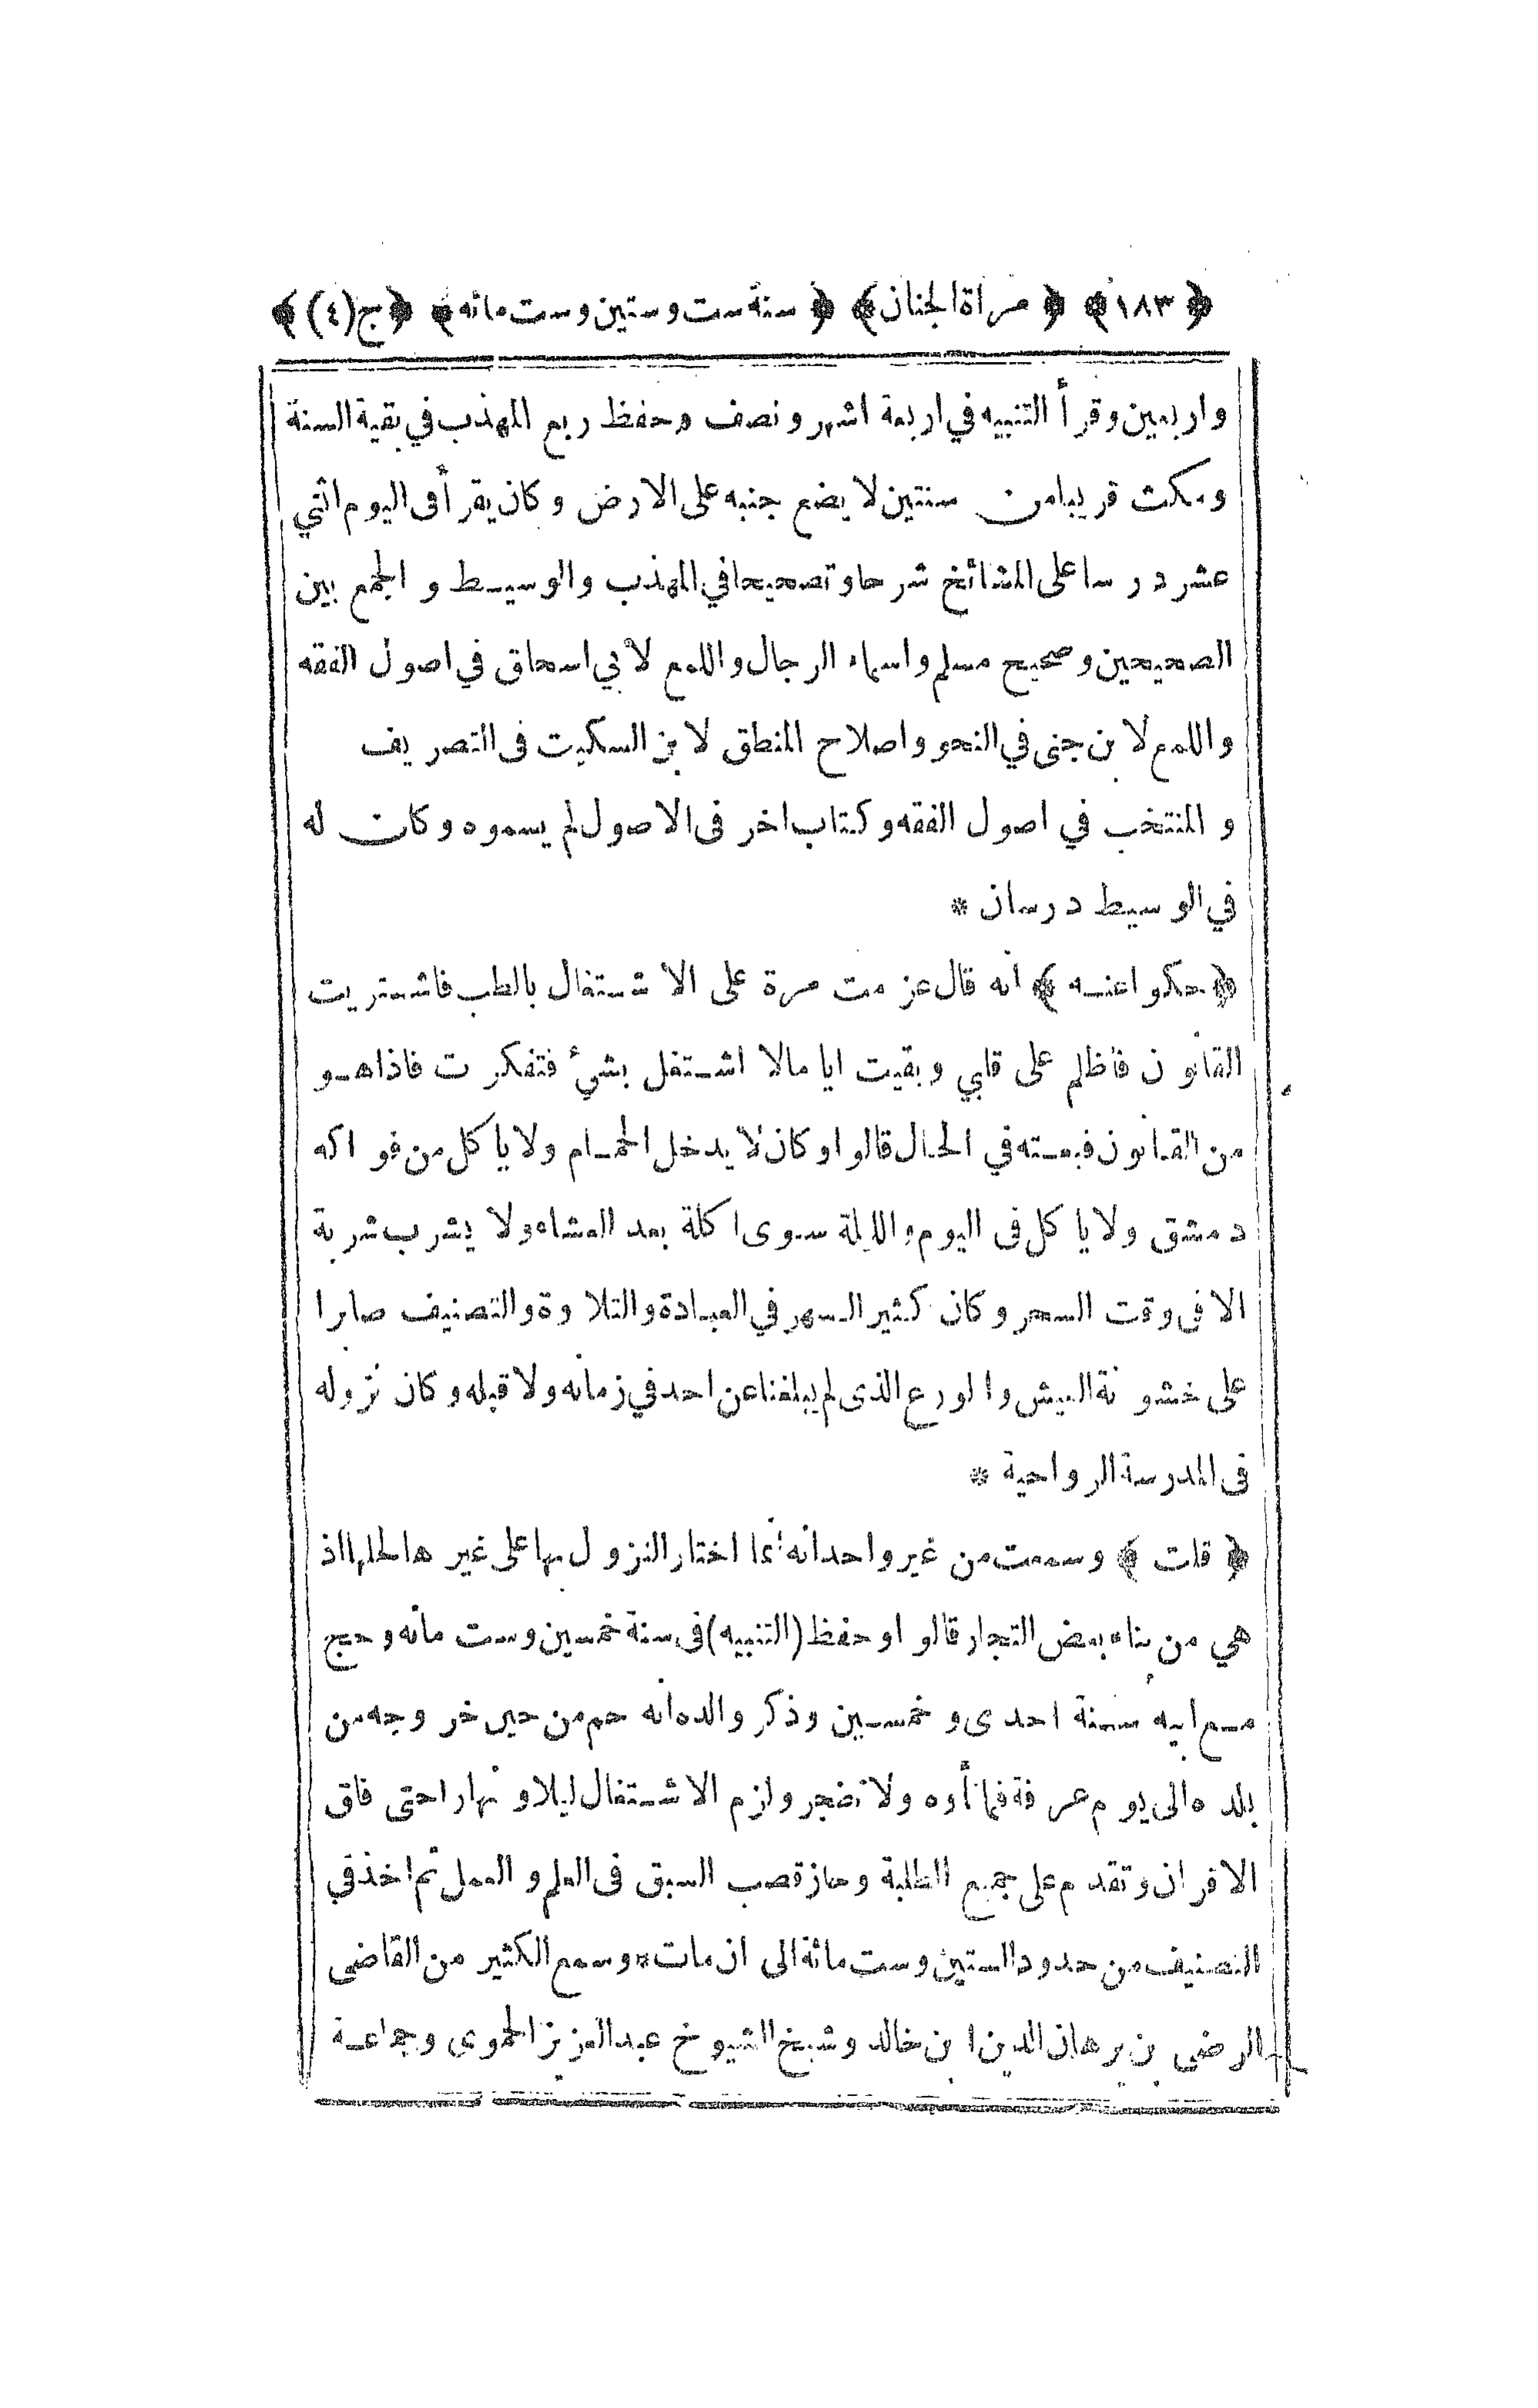 ﴿ ١٨٣ ﴾ ﴿ مراة الجنان ﴾ ﴿ سنة ست وستين وست مائه ﴾ ﴿ ج (٤) ﴾
واربعين وقرأ التنبيه في اربعة اشهر ونصف وحفظ ربع المهذب في بقية السنة
ومكث قريبا من سنتين لا يضع جنبه على الارض وكان يقرأ فى اليوم اثني
عشر درسا على المشائخ شرحا وتصحيحا في المهذب والوسيط و الجمع بين
الصحيحين وصحيح مسلم واسماء الرجال واللمع لأبي اسحاق في اصول الفقه
واللمع لا بن جنى في النحو واصلاح المنطق لا بن السكيت فى التصريف
و المنتخب في اصول الفقه وكتاب اخر فى الاصول لم يسموه وكان له
في الوسيط درسان *
﴿ حكوا عنه ﴾ انه قال عزمت مرة على الاشتغال بالطب فاشتريت
القانون فاظلم على قلبي وبقيت اياما لا اشتغل بشيء فتفكرت فاذا هو
من القانون فبعته في الحال قالوا وكان لا يدخل الحمام ولا يا كل من فواكه
دمشق ولا يا كل فى اليوم والليلة سوى اكلة بعد العشاء ولا يشرب شربة
الا فى وقت السحر وكان كثير السهر في العبادة والتلاوة والتصنيف صابرا
على خشونة العيش والورع الذى لم يبلغنا عن احد في زمانه ولا قبله وكان نزوله
فى المدرسة الرواحية *
﴿ قلت ﴾ وسمعت من غير واحد انه انما اختار النزول بها على غيرها لحلها اذ
هي من بناء بعض التجار قالوا وحفظ (التنبيه) فى سنة خمسين وست مائه وحج
مع ابيه سنة احدى وخمسين وذكر والده انه حم من حين خروجه من
بلده الى يوم عرفة فما تأوه ولا تضجر ولزم الاشتغال ليلا ونهارا حتى فاق
الاقران وتقدم على جميع الطلبة وحاز قصب السبق فى العلم والعمل ثم اخذ في
التصنيف من حدود الستين وست مائة الى ان مات * وسمع الكثير من القاضى
الرضى بن برهان الدين ابن خالد وشيخ الشيوخ عبدالعزيز الحموي وجماعة